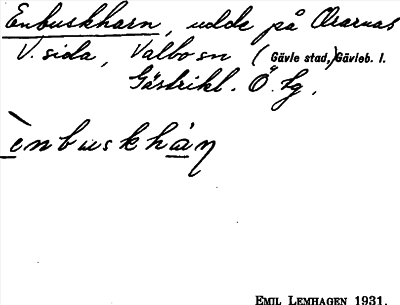 Enbuskharn, udde på Orarnas
V. sida, Valbo sn (Gävle stad,) Gävleb. l.
Gästrikl. Ö. tg.
ènbuskhán
EMIL LEMHAGEN 1931.